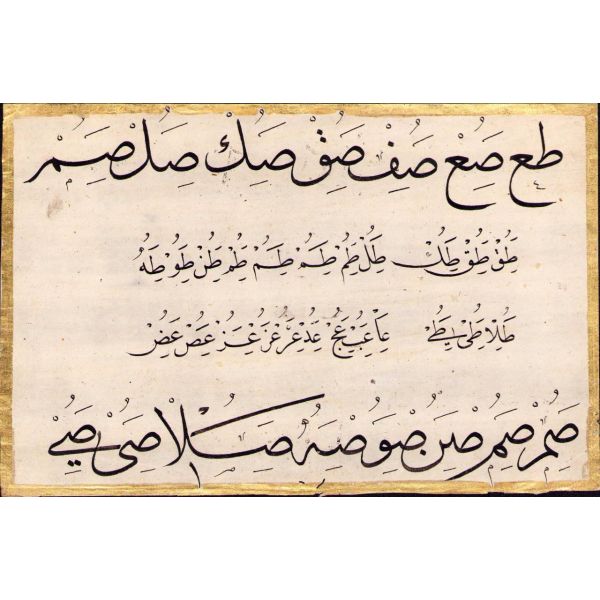 طع صع صف صق صك صل صم
طف طق طك طل طم طم طم طم طن طو طه
طلا طى طے عا عب عج عد عر عز عس عص عض
صم صم صن صو صه صلا صى صے